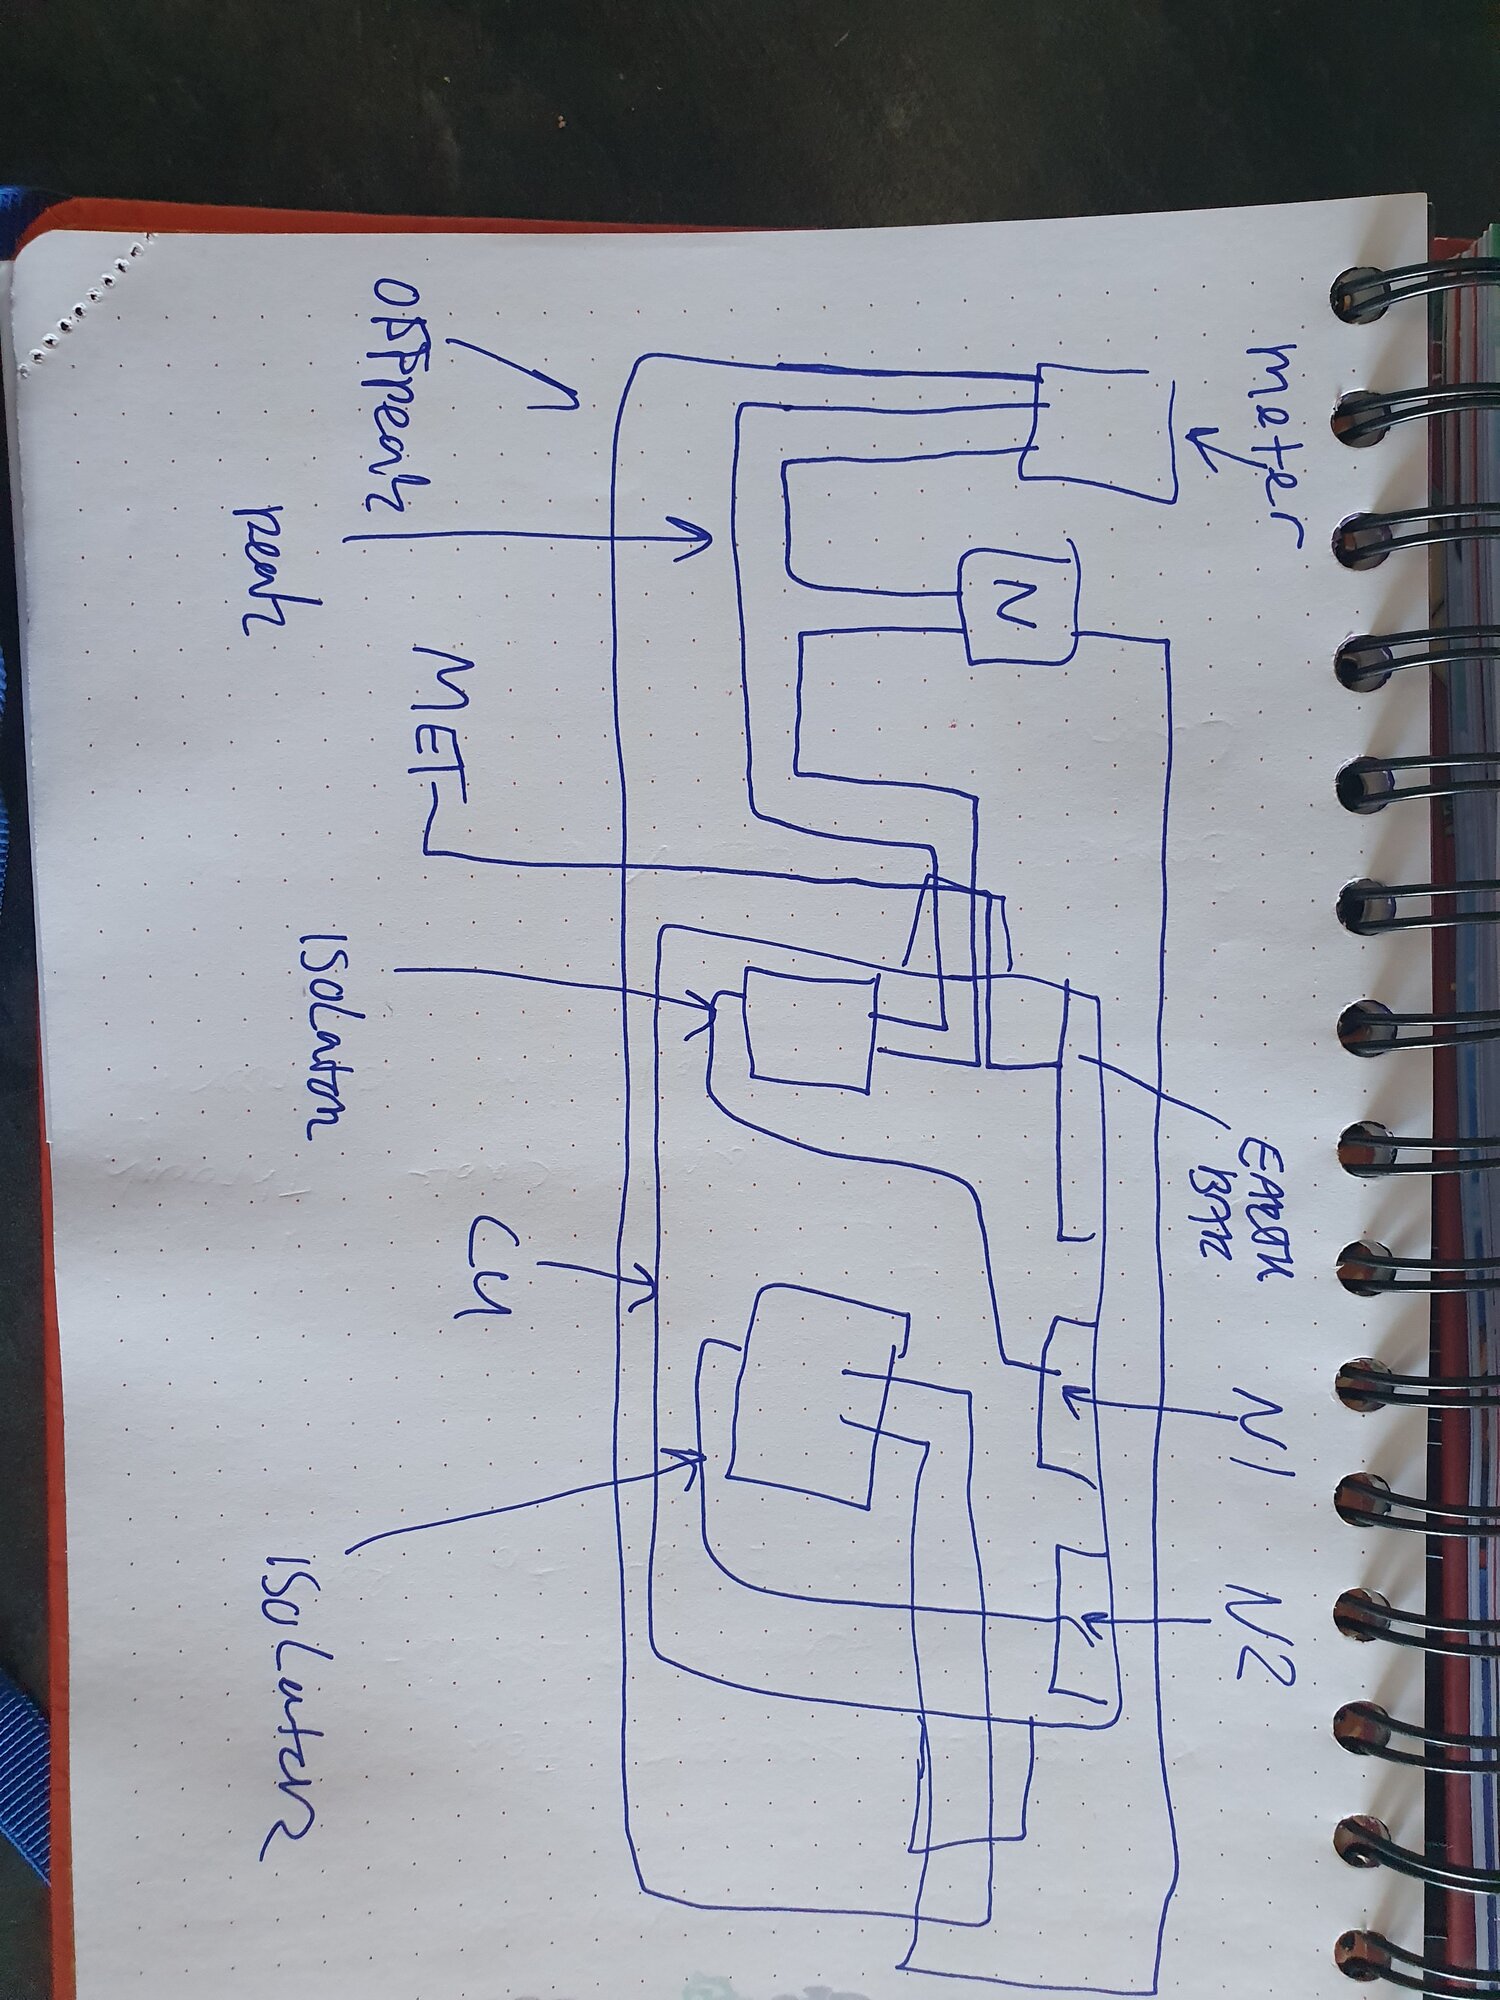 meter
N
EARTH
BAR
N1
N2
OFFPEAK
PEAK
MET
ISOLATOR
CU
ISOLATER